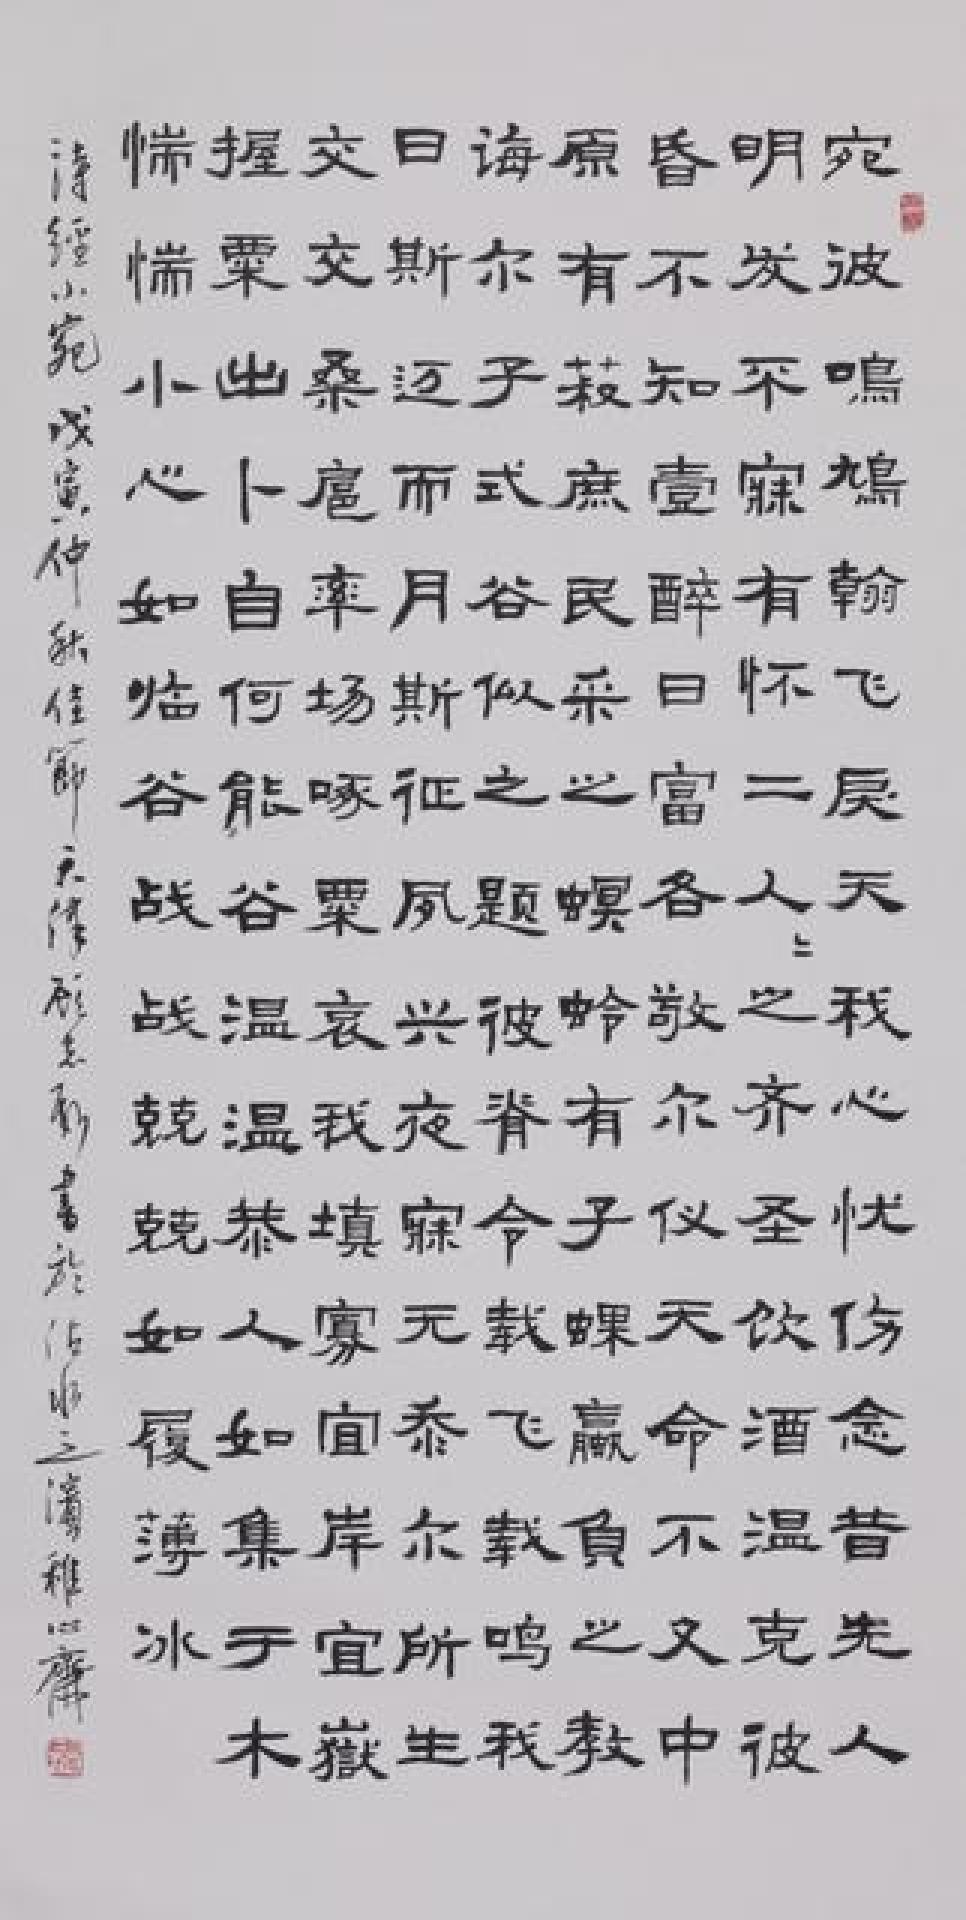 宛彼鳴鳩翰飞戾天我心忧伤念昔先人
明发不寐有怀二人〻之齐圣饮酒温克彼
昏不知壹醉日富各敬尔仪天命不又中
原有菽庶民采之螟蛉有子蜾蠃負之教
诲尔子式谷似之题彼脊令载飞载鸣我
日斯迈而月斯征夙兴夜寐无忝尔所生
交交桑扈率场啄粟哀我填寡宜岸宜嶽
握粟出卜自何能谷温温恭人如集于木
惴惴小心如临谷战战兢兢如履薄冰
诗經小宛戊寅仲秋佳節天津顾志新書於沽水之濱雅心齋